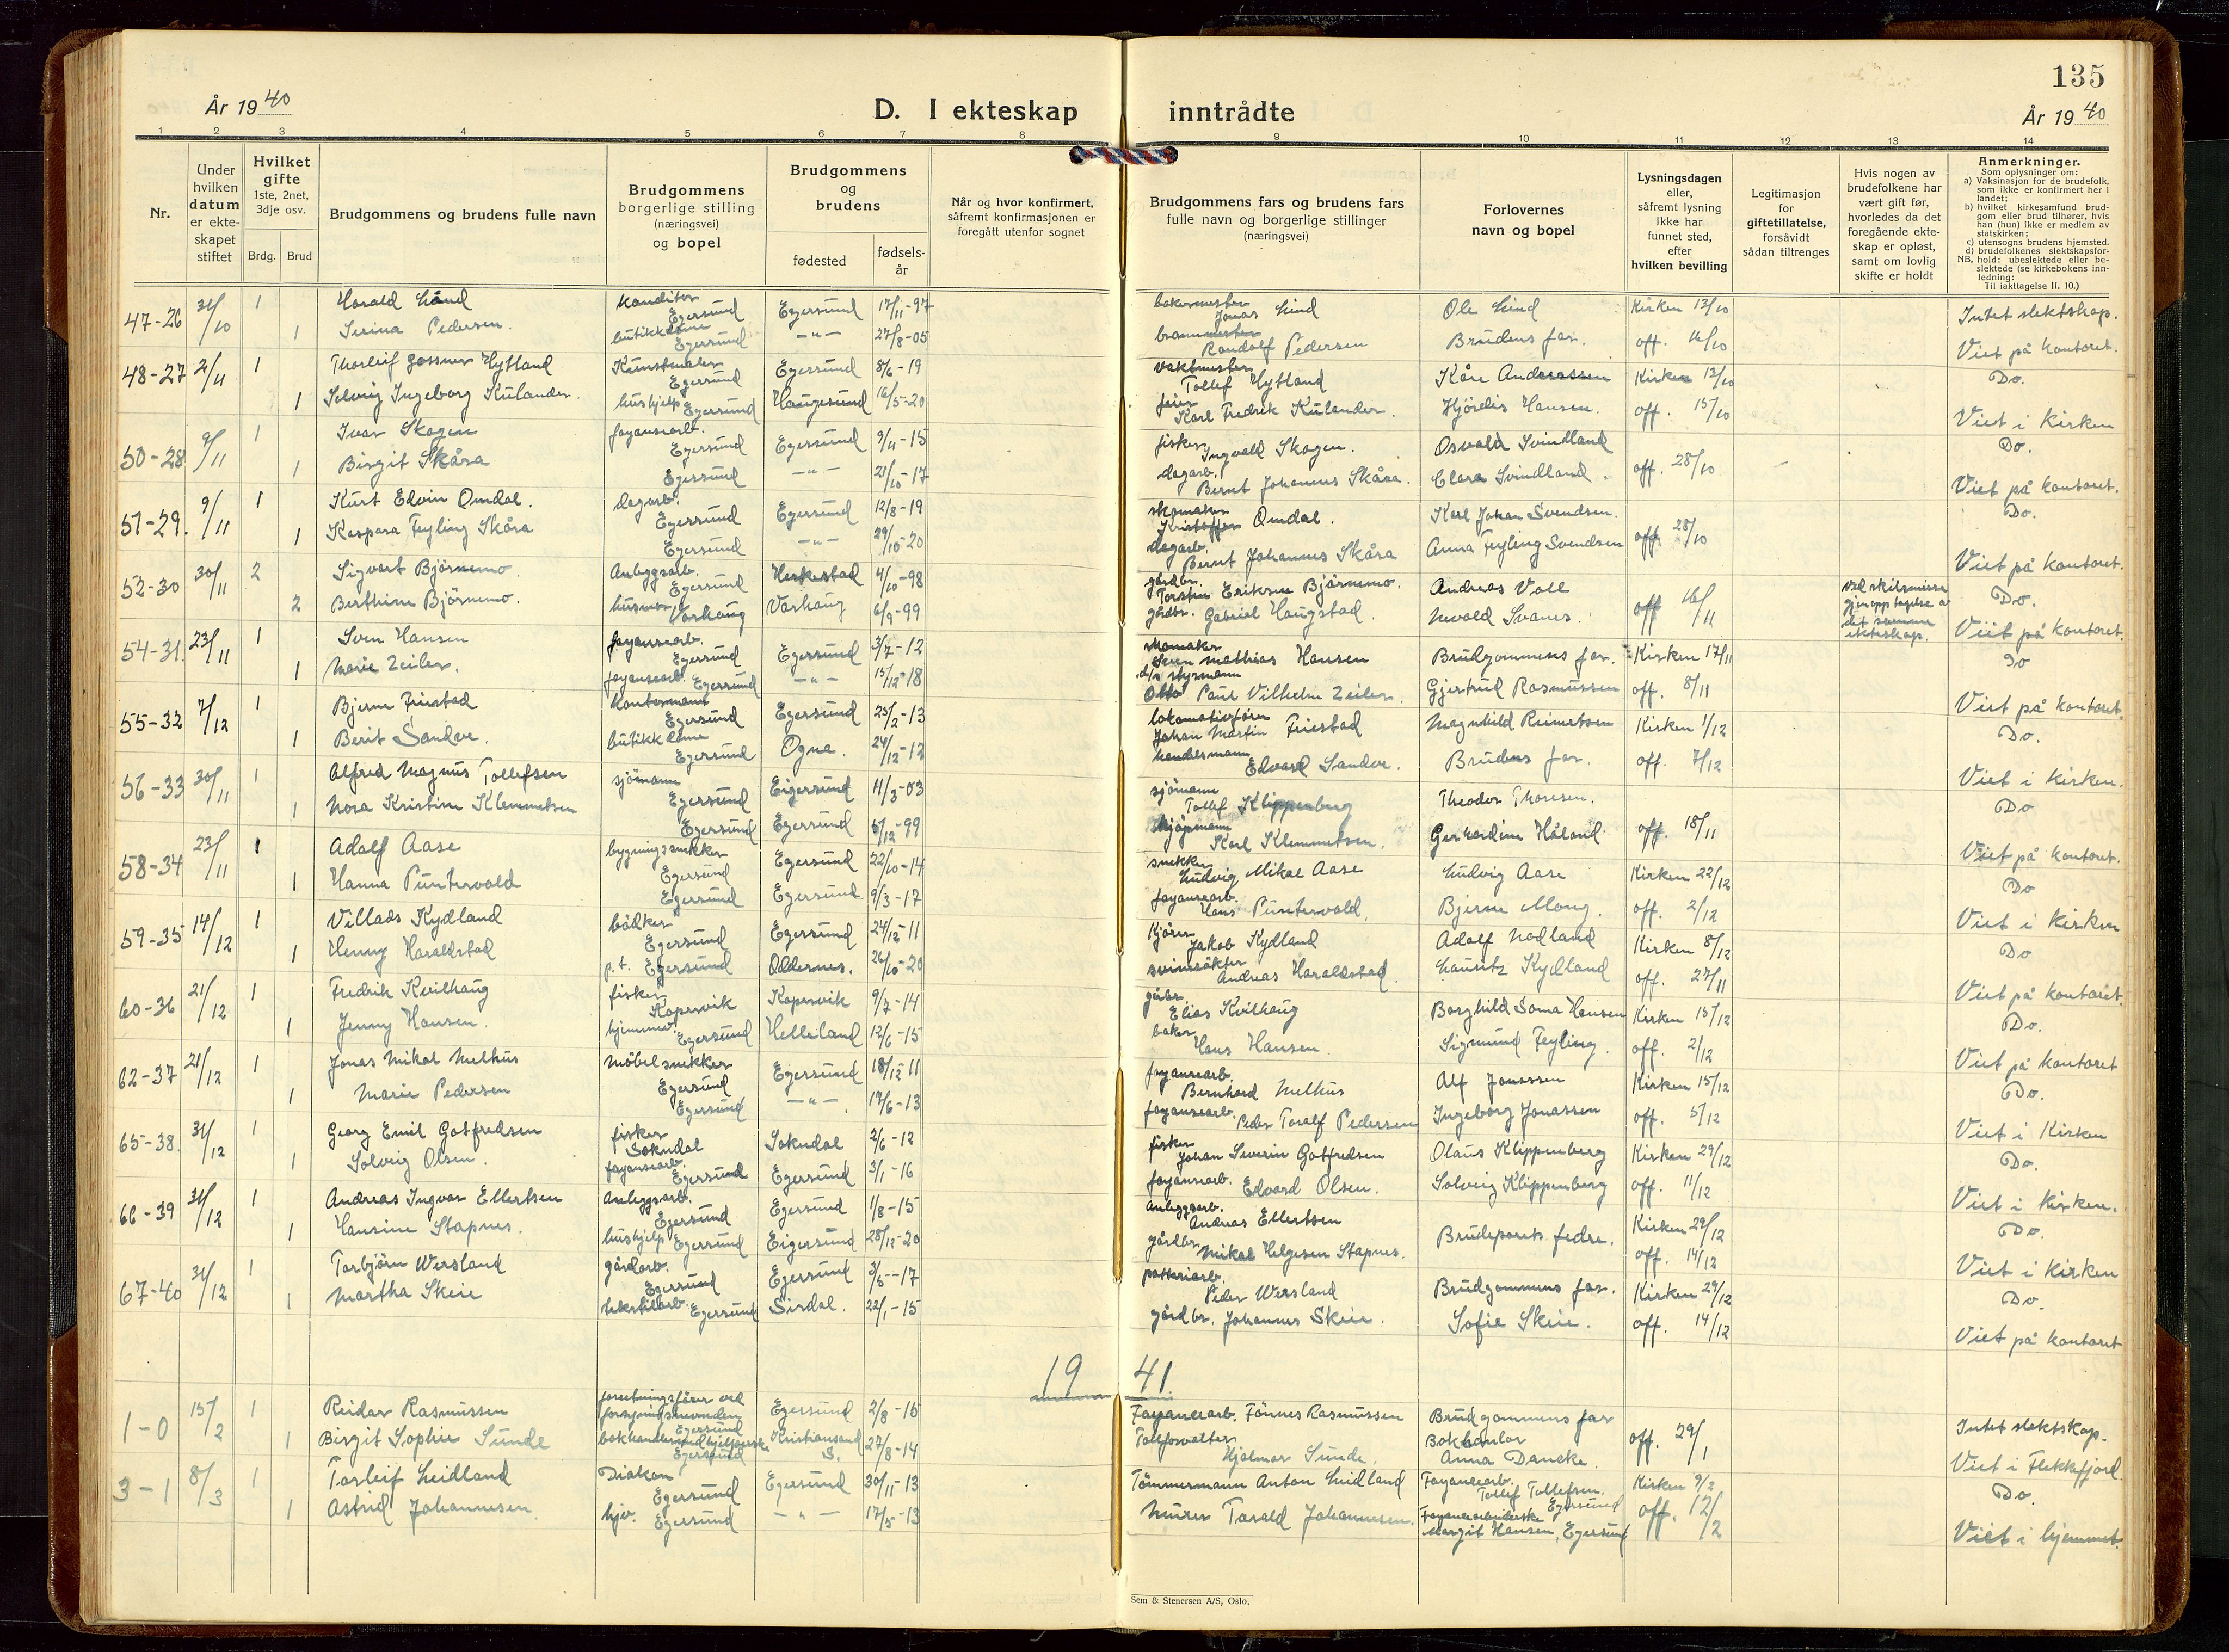 135
År 1940
D. I ekteskap inntrådte
År 1940
1 2 3 4 5 6 7 8 9 10 11 12 13 14
Nr.
Under
hvilken
datum
er ekte-
skapet
stiftet
Hvilket
gifte
1ste, 2net,
3dje osv.
Brdg. Brud
Brudgommens og brudens fulle navn
Brudgommens
borgerlige stilling
(næringsvei)
og bopel
Brudgommens
og
brudens
fødested
fødsels-
år
Når og hvor konfirmert,
såfremt konfirmasjonen er
foregått utenfor sognet
Brudgommens fars og brudens fars
fulle navn og borgerlige stillinger
(næringsvei)
Forlovernes
navn og bopel
Lysningsdagen
eller,
såfremt lysning
ikke har
funnet sted,
efter
hvilken bevilling
Legitimasjon
for
giftetillatelse,
forsåvidt
sådan tiltrenges
Hvis nogen av
brudefolkene har
vært gift før,
hvorledes da det
foregående ekte-
skap er opløst,
samt om lovlig
skifte er holdt
Anmerkninger.
Som oplysninger om:
a) Vaksinasjon for de brudefolk,
som ikke er konfirmert her i
landet;
b) hvilket kirkesamfund brud-
gom eller brud tilhører, hvis
han (hun) ikke er medlem av
statskirken;
c) utensogns brudens hjemsted.
d) brudefolkenes slektskapsfor-
NB. hold: ubeslektede eller be-
slektede (se kirkebokens inn-
ledning:
Til iaktlagelse II. 10.)
47-26 31/10 1 Harald Lind konditor Egersund Egersund 17/11-97 bakermester Jonas Lind Ole Lind Kirken 13/10 Intet slektskap.
1 Serina Pedersen. butikkdame Egersund -"- 27/8-05 brannmester Randolf Pedersen Brudens far. off. 16/10 Viet på kontoret.
48-27 2/11 1 Thorleif Gossner Hytland Kunstmaler Egersund Egersund 8/6-19 vaktmester Tollef Hytland Kåre Andreassen Kirken 13/10 Do.
1 Solveig Ingeborg Kulander. hushjelp Egersund Haugesund 16/5-20 feier Karl Fredrik Kulander. Hjördis Hansen. off. 15/10 Viet i Kirken
50-28 9/11 1 Ivar Skogen fayansearb. Egersund Egersund 9/4-15 fisker Ingvald Skogen. Osvald Svindland Do.
1 Birgit Skåra Egersund -"- 21/10-17 dagarb. Bernt Johannes Skåra. Clara Svindland. off. 28/10 Viet på kontoret.
51-29. 9/11 1 Kurt Edvin Omdal. dagarb. Egersund Egersund 12/8-19 skomaker Kristoffer Omdal. Karl Johan Svendsen. Do.
1 Kaspara Feyling Skåra Egersund -"- 29/10-20 dagarb. Bernt Johannes Skåra Anna Feyling Svendsen off. 28/10 Viet på kontoret.
52-30 30/11 2 Sigvart Björnemo. Anleggsarb. Egersund Heskestad 4/10-98 gårdbr. Torstein Eriksen Björnemo. Andreas Voll Ved skilsmisse Do.
2 Berthine Björnemo. husmor Varhaug Varhaug 6/9-99 gårdbr. Gabriel Haugstad. Nevold Svanes. off 16/11 gjenopptagelse av det samme ekteskap. Viet på kontoret.
54-31. 23/11 1 Sven Hansen fayansearb. Egersund Egersund 3/7-12 skomaker Sören Mathias Hansen Brudgommens far. Kirken 17/11 Do
1 Marie Zeiler. fayansearb. Egersund -"- 15/12-18 styrmann Otto Paul Vilhelm Zeiler. Gjertrud Rasmussen off. 8/11 Viet på kontoret.
55-32 7/12 1 Bjerne Friestad kontormann Egersund Egersund 25/2-13 lokomotivfører Johan Martin Friestad Magnhild Reinertsen Kirken 1/12 Do.
1 Berit Sandve. butikkdame Egersund Ogna. 24/12-12 handelsmann Edvard Sandve. Brudens far. off. 7/12 Viet i Kirken.
56-33 30/11 1 Alfred Magnus Tollefsen sjömann Egersund Eigersund 11/3-03 sjömann Tollef Klippenberg Theodor Thorsen. Do
1 Nora Kristine Klemmetsen Egersund Egersund 5/12-99 kjøpmann Karl Klemmetsen. Gerhardine Håland off. 18/11 Viet på kontoret.
58-34 23/11 1 Adolf Aase bygningssnekker Egersund Egersund 22/10-14 snekker Ludvig Mikal Aase Ludvig Aase Kirken 22/12 Do
1 Hanna Puntervold Egersund Egersund 9/3-17 fayansearb. Hans Puntervold. Bjerne Mong. off. 2/12 Viet i Kirken
59-35 14/12 1 Villads Kydland bødker Egersund Egersund 24/12-11 kjører Jakob Kydland Adolf Nodland Kirken 8/12 Do
1 Henny Haraldstad p.t. Egersund Oddernes. 26/10-20 Andreas Haraldstad. Lauritz Kydland off. 27/11 Viet på kontoret.
60-36 21/12 1 Fredrik Kvilhaug fisker Kopervik Kopervik 9/7-14 gårdbr. Elias Kvilhaug Borghild Soma Hansen Kirken 15/12 Do.
1 Jenny Hansen. hjemmev. Egersund Helleland 12/6-15 baker Hans Hansen. Sigmund Feyling. off. 2/12 Viet på kontoret
62-37 21/12 1 Jonas Mikal Melhus Möbelsnekker Egersund Egersund 18/12-11 fayansearb. Bernhard Melhus Alf Jonassen Kirken 15/12 Do.
1 Marie Pedersen Egersund -"- 17/6-13 fayansearb. Peder Toralf Pedersen Ingeborg Jonassen off. 5/12 Viet i Kirken
65-38. 31/12 1 Georg Emil Gotfredsen fisker Sokndal Sokndal 2/6-12 fisker Johan Severin Gotfredsen Olaus Klippenberg Kirken 29/12 Do.
1 Solveig Olsen. fayansearb. Egersund Egersund 3/1-16 fayansearb. Edvard Olsen. Solveig Klippenberg off. 11/12 Viet i Kirken.
66-39 31/12 1 Andreas Ingvar Ellertsen Anleggsarb. Egersund Egersund 1/8-15 Anleggsarb. Andreas Ellertsen Brudeparets fedre. Kirken 29/12 Do.
1 Hansine Stapnes. hushjelp Egersund Eigersund 28/12-20 gårdbr. Mikal Helgesen Stapnes. off. 14/12 Viet i Kirken
67-40 31/12 1 Torbjörn Wersland gårdarb. Egersund Egersund 3/5-17 potteriarb. Peder Wersland Brudgommens far. Kirken 29/12 Do.
1 Martha Skeie tekstilarb. Egersund Sirdal. 22/1-15 gårdbr. Johannes Skeie. Sofie Skeie. off. 14/12 Viet på kontoret
1941
1-0 15/2 1 Reidar Rasmussen forretningsfører ved forsyningsnemnden Egersund Egersund 2/8-16 Fayansearb. Tönnes Rasmussen Brudgommens far Intet slektskap.
1 Birgit Sophie Sunde Egersund Kristiansand S. 27/8-14 Tollforvalter Hjalmar Sunde. Anna Dancke. off. 29/1 Viet i Flekkefjord.
3-1 8/3 1 Torleif Leidland Diakon Egersund Egersund 30/11-13 Tömmermann Anton Leidland Fayansearb. Tollef Tollefsen. Egersund Kirken 9/2 Do.
1 Astrid Johannesen. hjv. Egersund -"- 17/5-13 Murer Torald Johannesen. Fayansearbeiderske Margit Hansen, Egersund off. 12/2 Viet i hjemmet.
Sem & Stenersen A/S, Oslo.